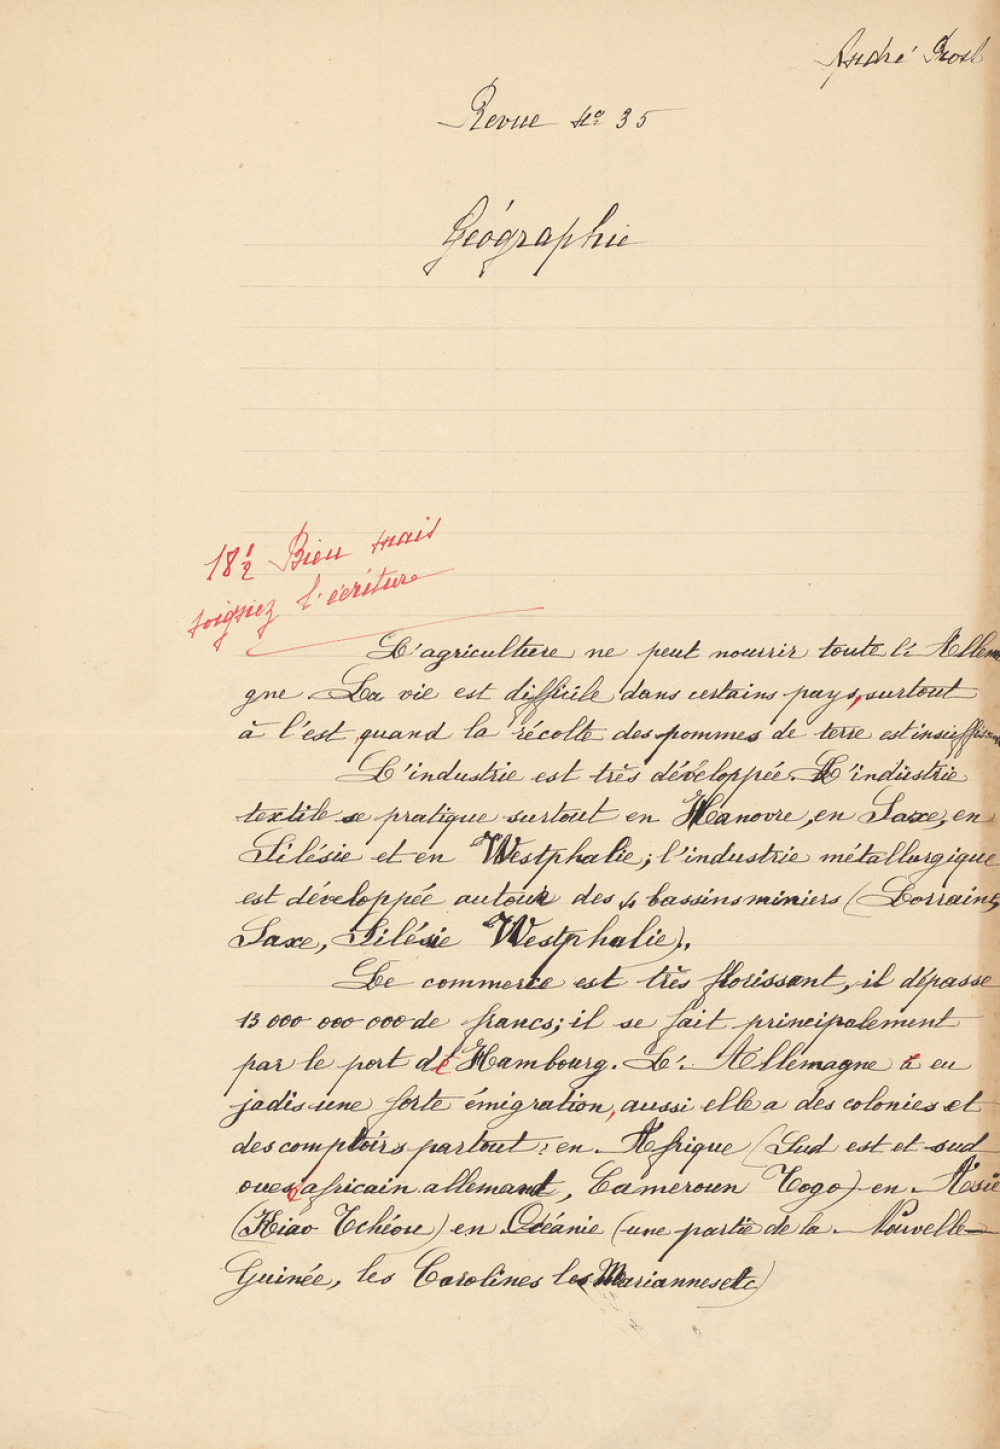 André Prost
Revue No 35
Géographie
18 1/2 Bien mais
soigniez l'écriture
L'agriculture ne peut nourrir toute l'Allema
gne La vie est difficile dans certains pays, surtout
à l'est, quand la récolte des pommes de terre est insuffisan
L'industrie est très développée. L'industrie
textile se pratique surtout en Hanovre, en Saxe, en
Silésie et en Westphalie; l'industrie métallurgique
est développée autour des 4 bassins miniers (Lorraine,
Saxe, Silésie Westphalie).
Le commerce est très florissant, il dépasse
13 000 000 000 de francs; il se fait principalement
par le port de Hambourg. L'Allemagne a eu
jadis une forte émigration, aussi elle a des colonies et
des comptoirs partout: en Afrique (Sud est et sud
ouest africain allemand, Cameroun Togo) en Asie
(Kiao Tchéou) en Océanie (une partie de la Nouvelle-
Guinée, les Carolines les Mariannes etc)